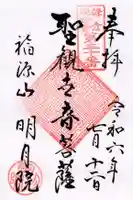 奉拝
令和六年
七月十二日
聖観世音菩薩
福源山
明月院